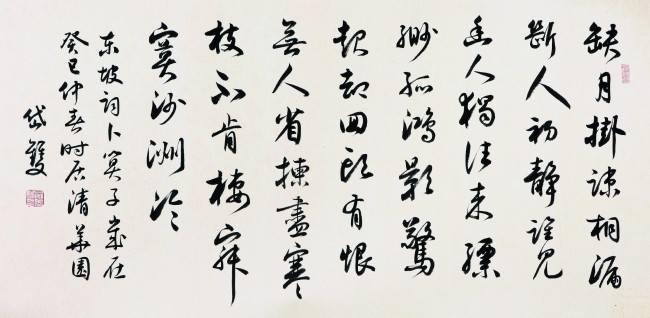 缺月掛疎桐漏
斷人初靜誰見
幽人獨往來縹
緲孤鴻影驚
起却回頭有恨
無人省揀盡寒
枝不肯棲寂
寞沙洲冷
东坡词卜算子歲在
癸巳仲春时居清華園
岱雙